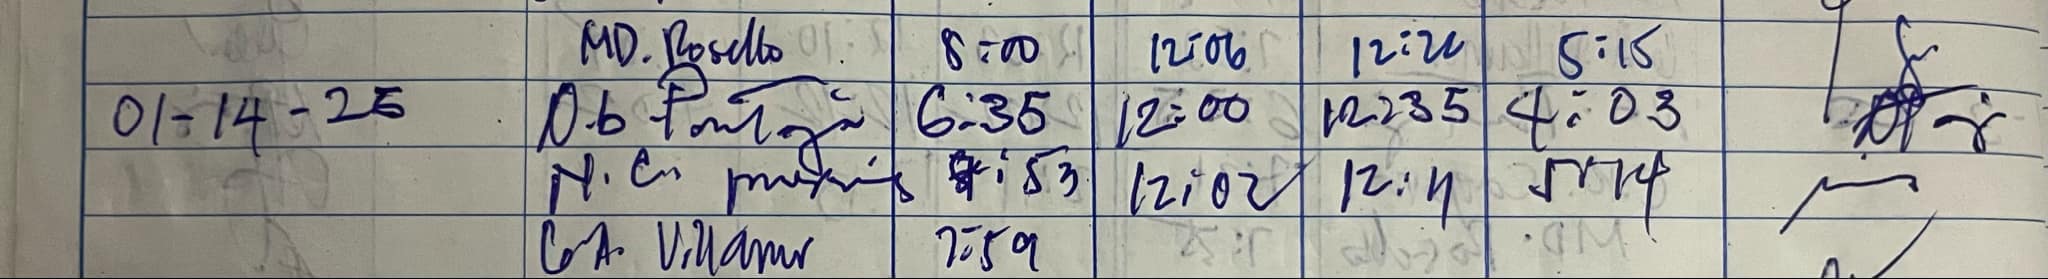 MD. Rosello 8:00 12:06 12:20 5:15
01-14-25 D.b 6:35 12:00 12:35 4:03
N.C. :53 12:02 12:11 5:14
G.A. Villamor 7:59